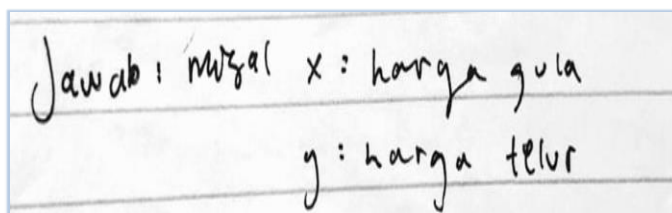 Jawab : misal x : harga gula
y : harga telur